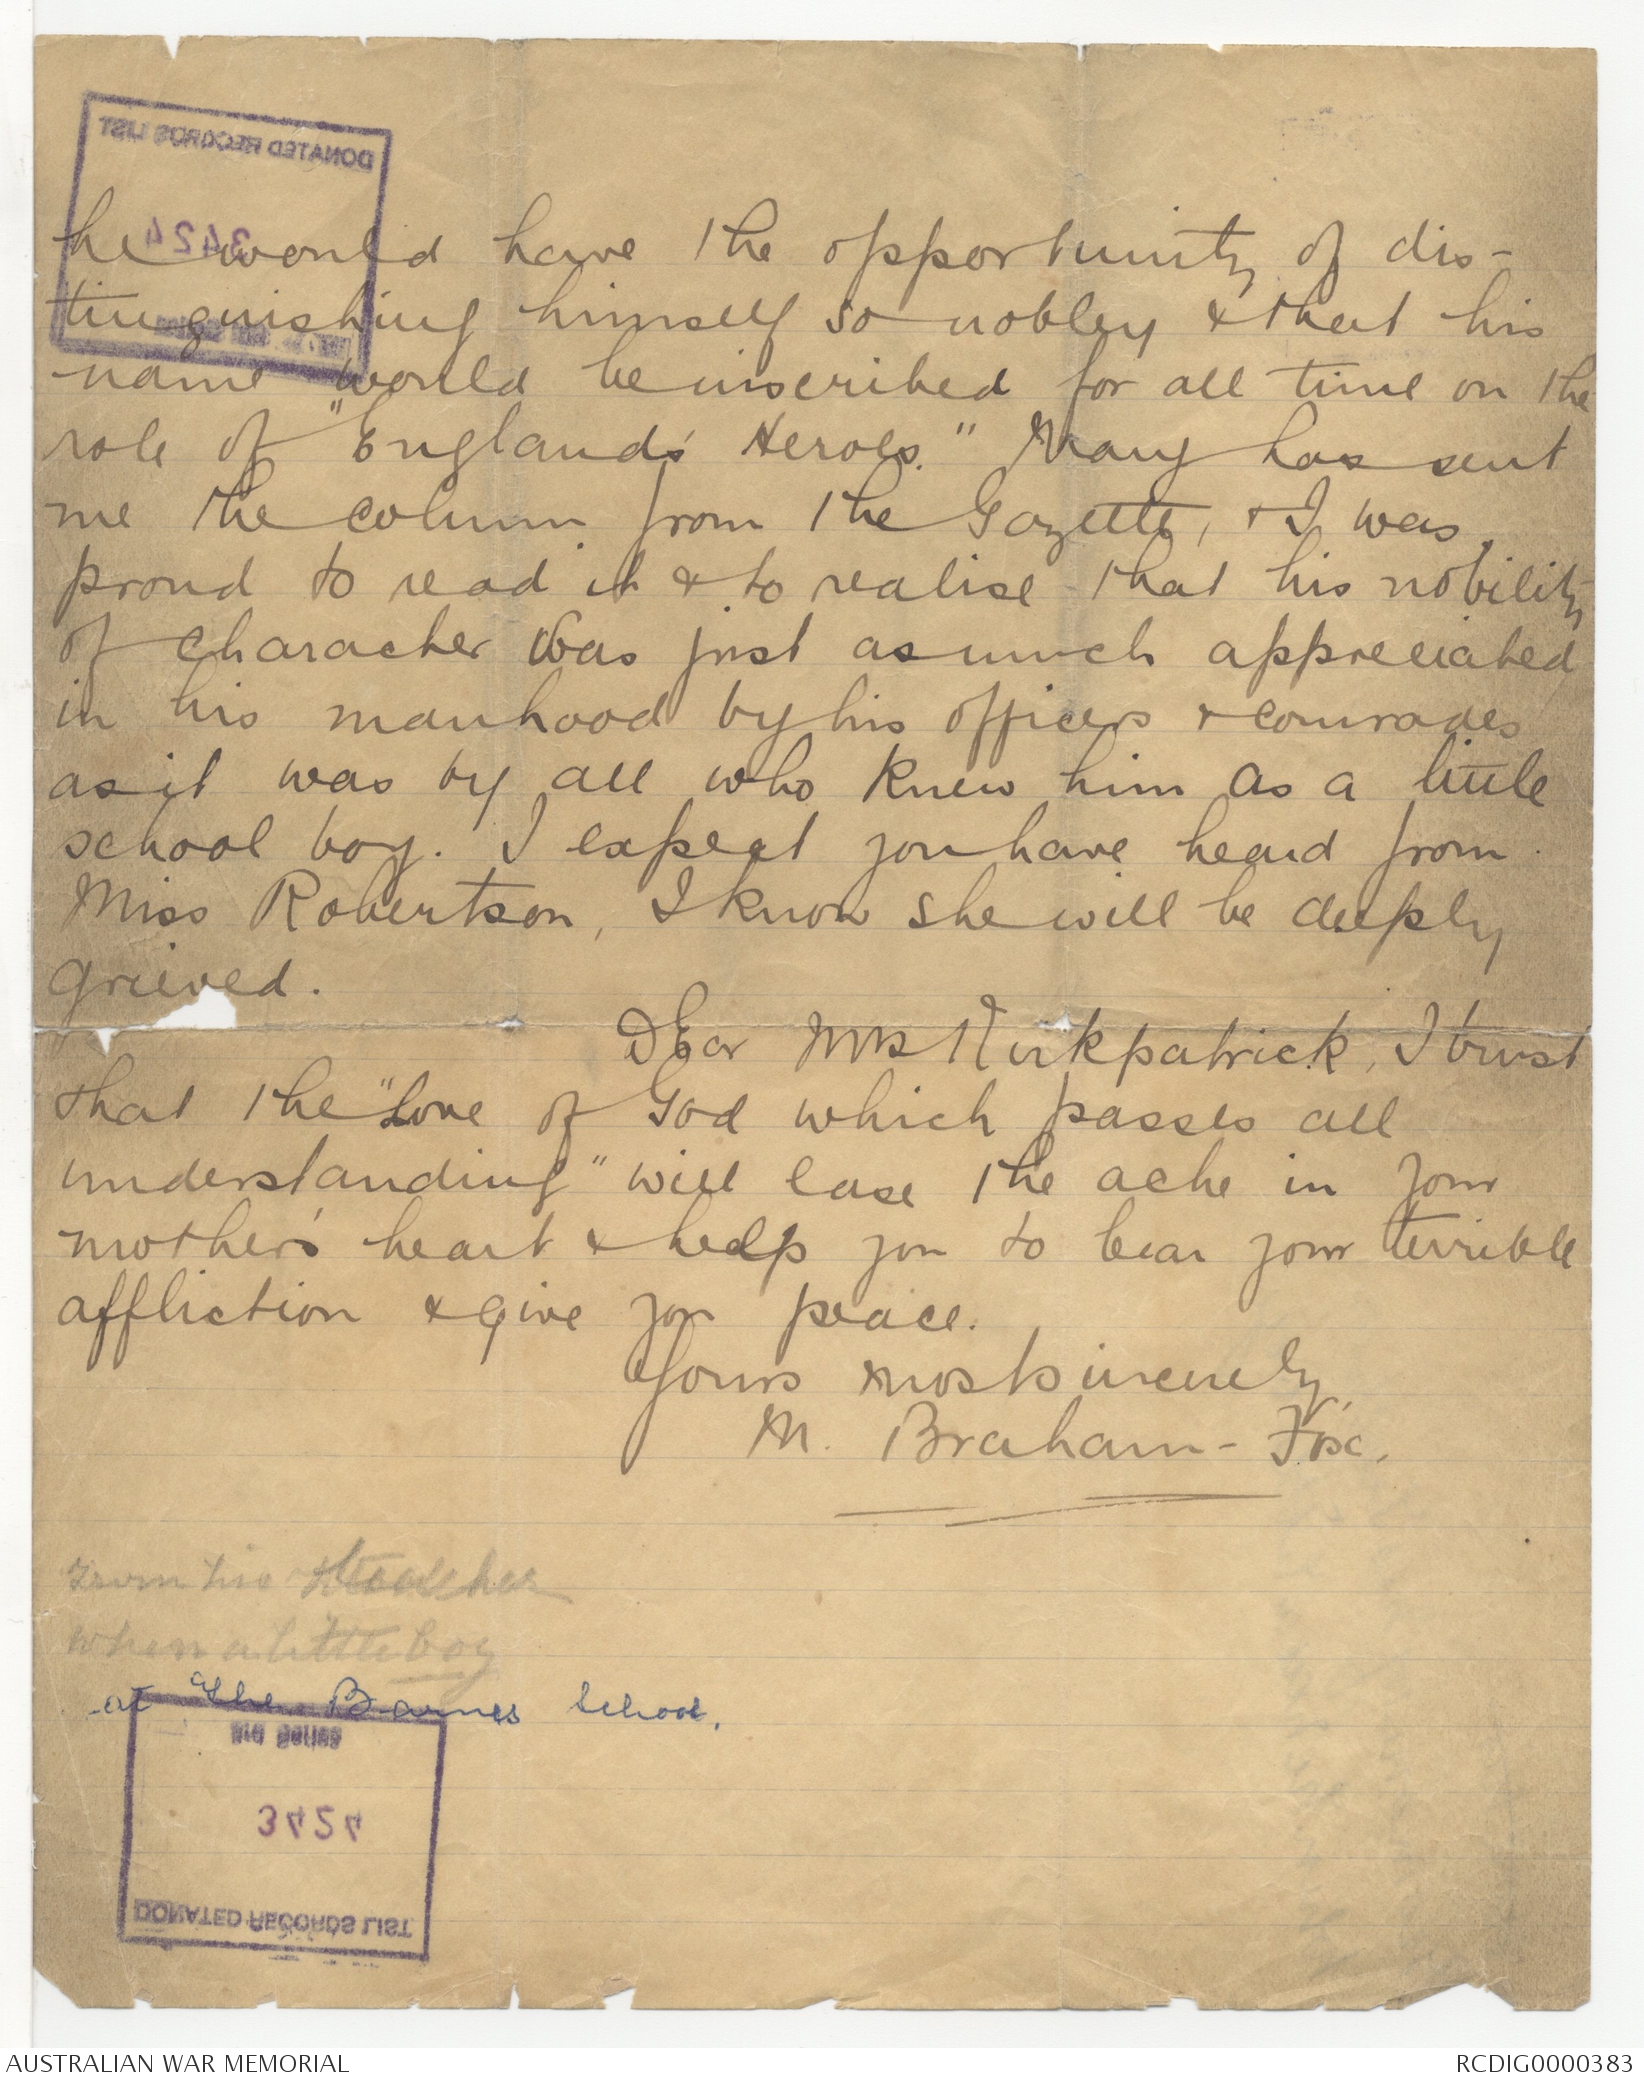 DONATED RECORDS LIST
3424
he would have the opportunity of dis-
tinguishing himself so nobley & that his
name would be inscribed for all time on the
role of "England's Heroes." Mary has sent
me the column from the Gazette, & I was
proud to read it & to realise that his nobility
of character was just as much appreciated
in his manhood by his officers & comrades
as it was by all who knew him as a little
school boy. I expect you have heard from
Miss Robertson, I know she will be deeply
grieved.
Dear Mrs Kirkpatrick, I trust
that the "Love of God which passes all
understanding" will ease the ache in your
mother's heart & help you to bear your terrible
affliction & give you peace.
Yours most sincerely,
M. Braham-Fox.
From his teacher
when a little boy
at "The Barnes School.
3rd Series
3424
DONATED RECORDS LIST
AUSTRALIAN WAR MEMORIAL
RCDIG0000383